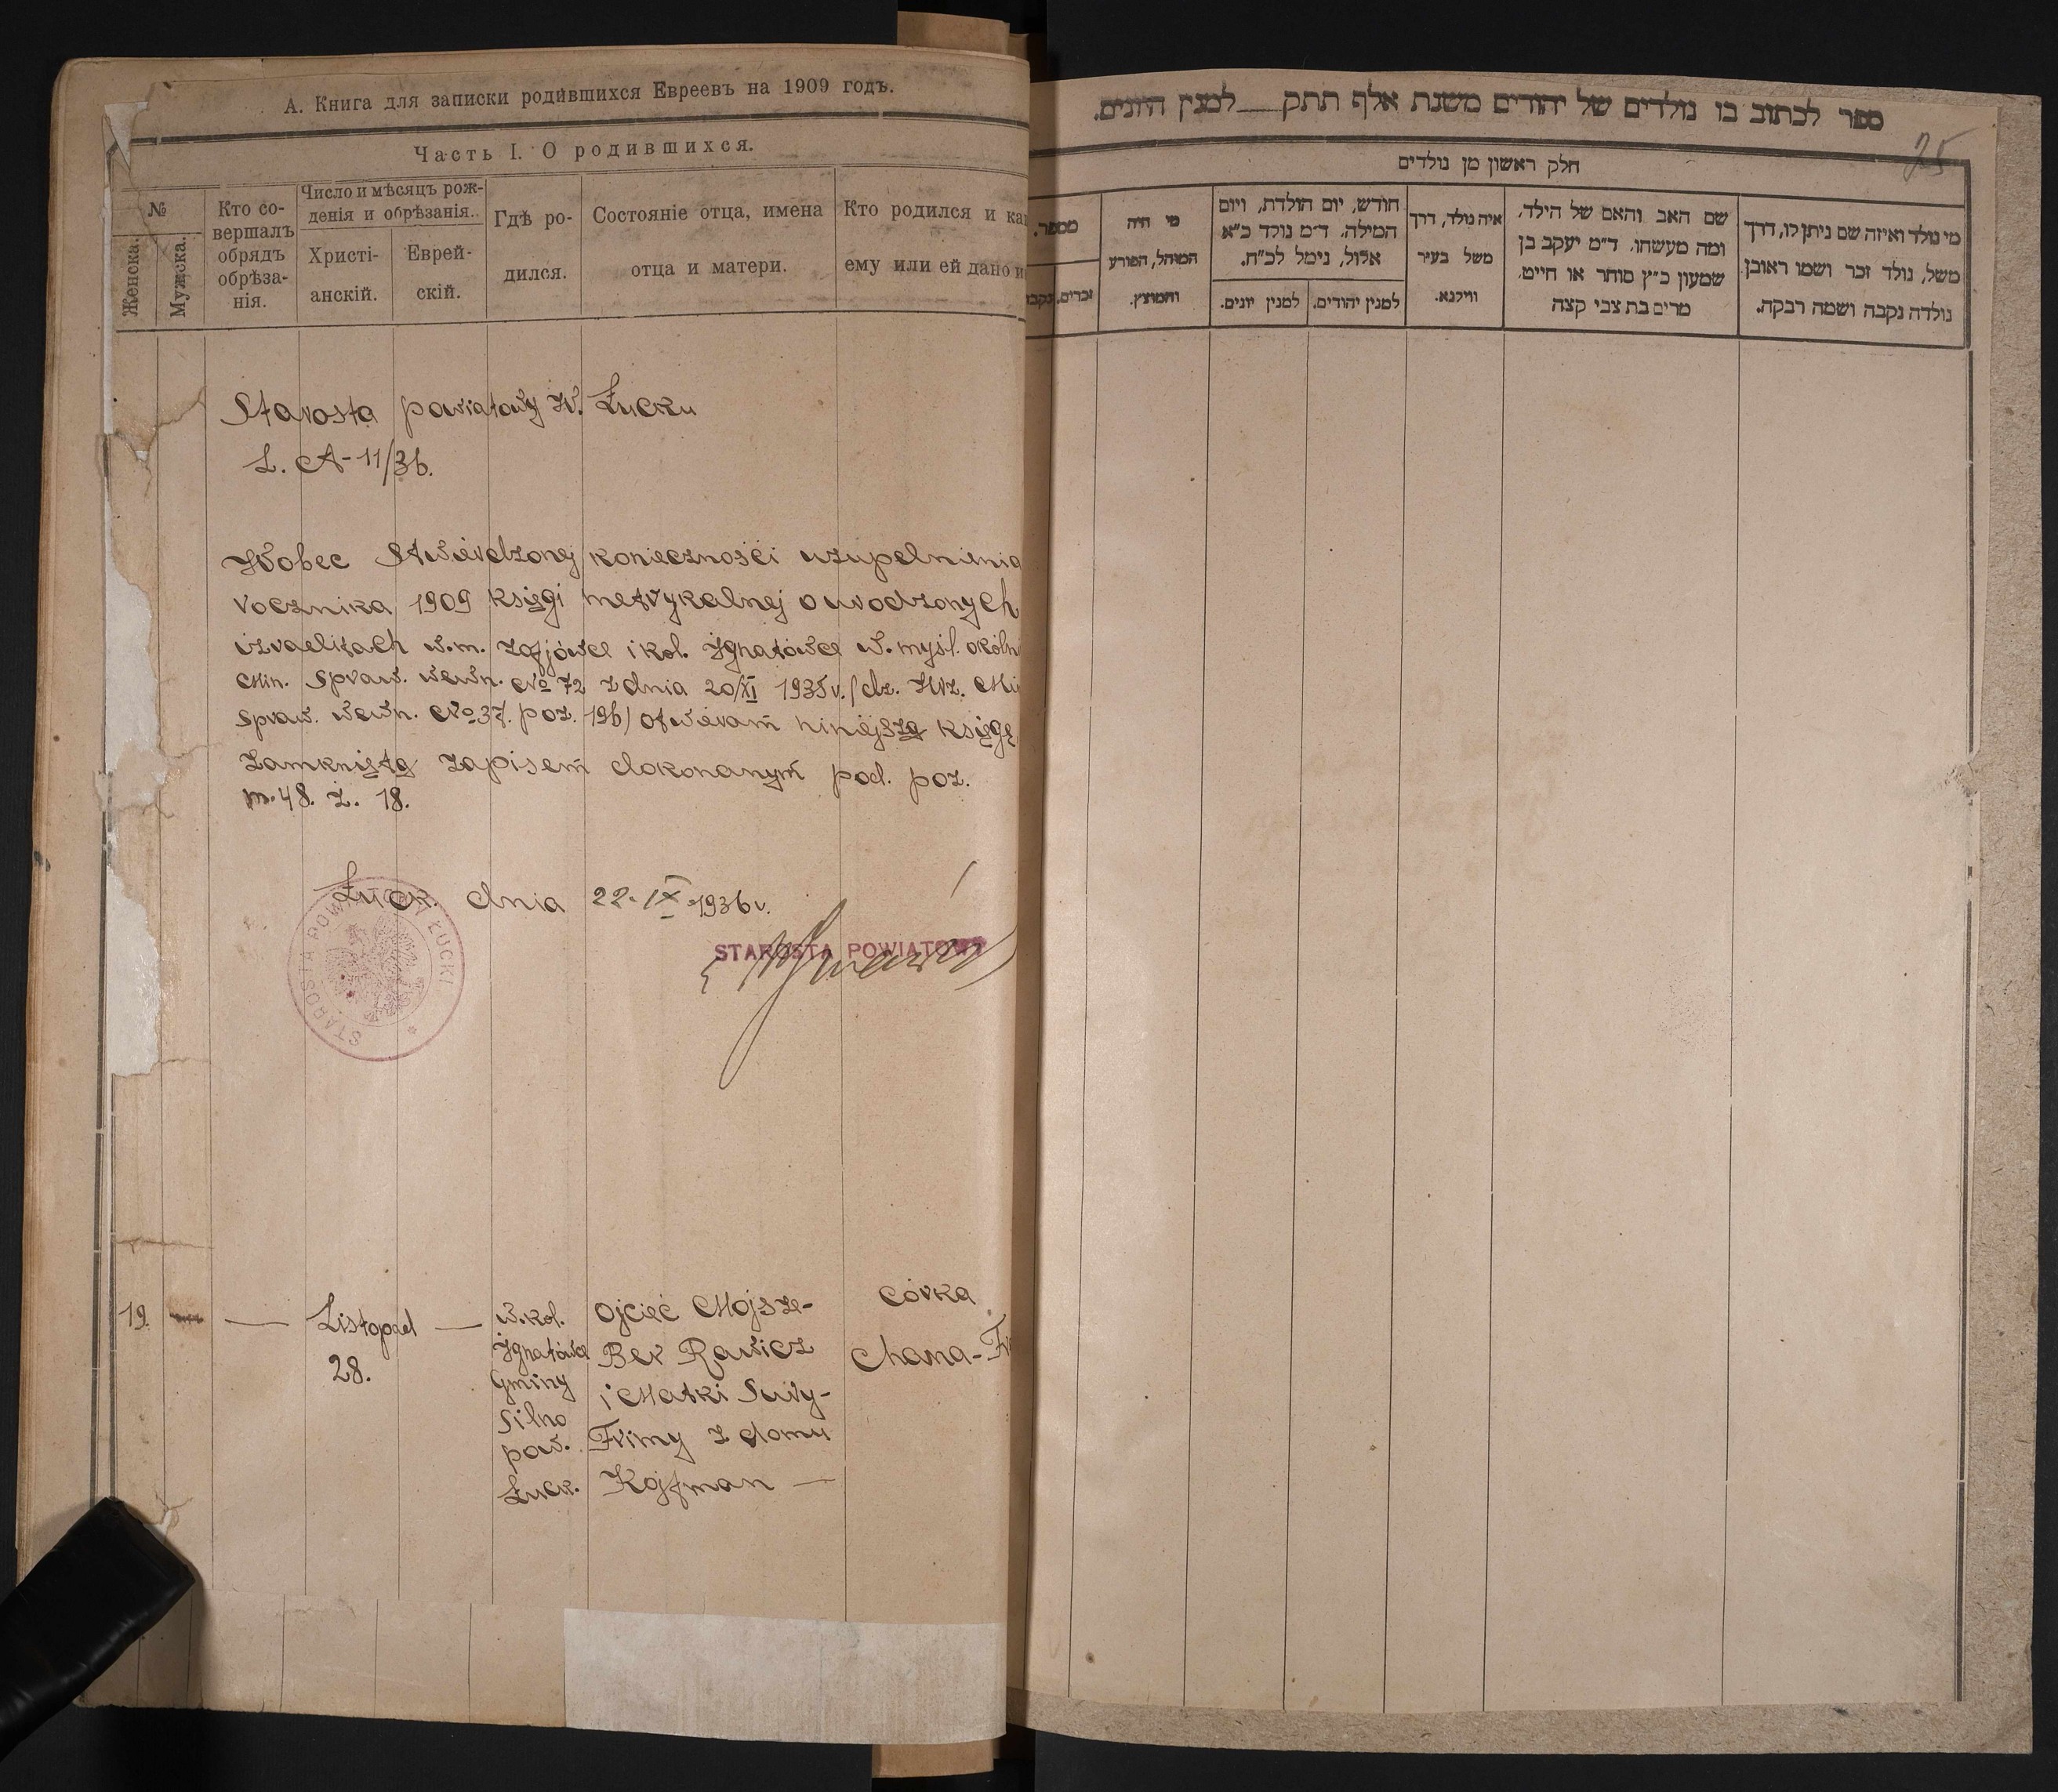 А. Книга для записки родившихся Евреевъ на 1909 годъ.
Часть I. О родившихся.
№
Женска.
Мужска.
Кто со-
вершалъ
обрядъ
обрѣза-
нія.
Число и мѣсяцъ рож-
денія и обрѣзанія.
Христі-
анскій.
Еврей-
скій.
Гдѣ ро-
дился.
Состояніе отца, имена
отца и матери.
Кто родился и ка
ему или ей дано и
Starosta powiatowy w. Łucku
L. A-11/36.
Wobec stwierdzonej konieczności uzupełnienia
rocznika 1909 księgi metrykalnej o urodzonych
izraelitach w.m. Zofjówce i kol. Ignatówce w. myśl. okóln
Min. Spraw. Wewn. No 72 z dnia 20/XI 1935r. (dz. Urz. Mi
Spraw. Wewn. No 37. poz. 196) otwieram niniejszą księgę
zamkniętą zapisem dokonanym pod. poz.
m. 48. ż. 18.
Łuck. dnia 22. IX. 1936 r.
STAROSTA POWIATOWY ŁUCKI
STAROSTA POWIATOWY
19.
Listopad
28.
w. kol.
Ignatówce
Gminy
Silno
pow.
Łuck.
Ojciec Mojsze-
Ber Rawicz
i Matki Sury-
Frimy z domu
Kojfman —
Córka
Chana-
25
ספר לכתוב בו נולדים של יהודים משנת אלף תתק___למנין היונים.
חלק ראשון מן נולדים
מספר.
זכרים.
מי היה
המוהל, הפורע
והמוצץ.
חודש, יום הולדת, ויום
המילה. ד״מ נולד כ״א
אלול, נימל לכ״ח.
למנין יונים.
למנין יהודים.
איה נולד, דרך
משל בעיר
ווילנא.
שם האב והאם של הילד,
ומה מעשהו. ד״מ יעקב בן
שמעון כ״ץ סוחר או חייט,
מרים בת צבי קצה
מי נולד ואיזה שם ניתן לו, דרך
משל, נולד זכר ושמו ראובן
נולדה נקבה ושמה רבקה.